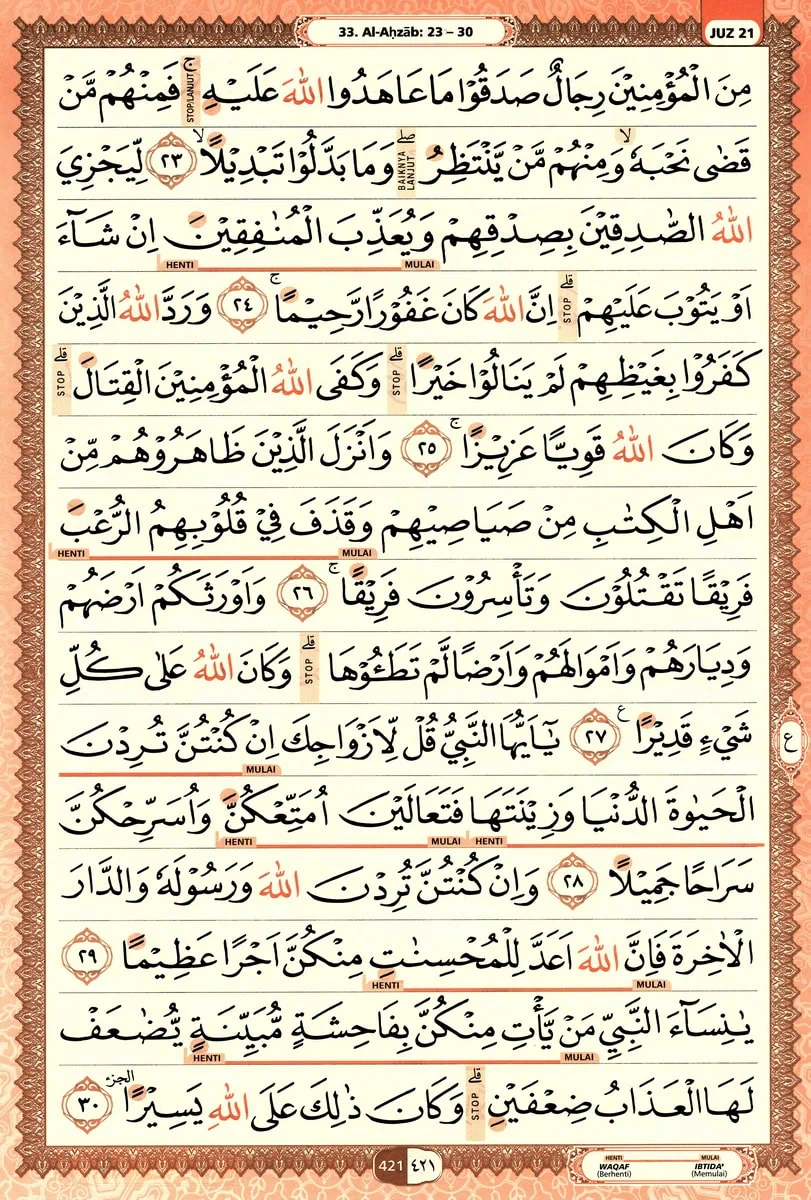 33. Al-Aḥzāb: 23 – 30
JUZ 21
مِنَ الْمُؤْمِنِيْنَ رِجَالٌ صَدَقُوْا مَا عَاهَدُوا اللّٰهَ عَلَيْهِ ۚ STOP/LANJUT فَمِنْهُمْ مَّنْ
قَضٰى نَحْبَهٗ ۙ وَمِنْهُمْ مَّنْ يَّنْتَظِرُ ۖ BAIKNYA LANJUT وَمَا بَدَّلُوْا تَبْدِيْلًا ۙ ٢٣ لِّيَجْزِيَ
اللّٰهُ الصّٰدِقِيْنَ بِصِدْقِهِمْ وَيُعَذِّبَ الْمُنٰفِقِيْنَ اِنْ شَاۤءَ
MULAI HENTI
اَوْ يَتُوْبَ عَلَيْهِمْ ۗ STOP اِنَّ اللّٰهَ كَانَ غَفُوْرًا رَّحِيْمًا ۚ ٢٤ وَرَدَّ اللّٰهُ الَّذِيْنَ
كَفَرُوْا بِغَيْظِهِمْ لَمْ يَنَالُوْا خَيْرًا ۗ STOP وَكَفَى اللّٰهُ الْمُؤْمِنِيْنَ الْقِتَالَ ۗ STOP
وَكَانَ اللّٰهُ قَوِيًّا عَزِيْزًا ۚ ٢٥ وَاَنْزَلَ الَّذِيْنَ ظَاهَرُوْهُمْ مِّنْ
اَهْلِ الْكِتٰبِ مِنْ صَيَاصِيْهِمْ وَقَذَفَ فِيْ قُلُوْبِهِمُ الرُّعْبَ
MULAI HENTI
فَرِيْقًا تَقْتُلُوْنَ وَتَأْسِرُوْنَ فَرِيْقًا ۚ ٢٦ وَاَوْرَثَكُمْ اَرْضَهُمْ
وَدِيَارَهُمْ وَاَمْوَالَهُمْ وَاَرْضًا لَّمْ تَطَـُٔوْهَا ۗ STOP وَكَانَ اللّٰهُ عَلٰى كُلِّ
شَيْءٍ قَدِيْرًا ࣖ ٢٧ يٰٓاَيُّهَا النَّبِيُّ قُلْ لِّاَزْوَاجِكَ اِنْ كُنْتُنَّ تُرِدْنَ
ع
MULAI
الْحَيٰوةَ الدُّنْيَا وَزِيْنَتَهَا فَتَعَالَيْنَ اُمَتِّعْكُنَّ وَاُسَرِّحْكُنَّ
HENTI MULAI HENTI
سَرَاحًا جَمِيْلًا ٢٨ وَاِنْ كُنْتُنَّ تُرِدْنَ اللّٰهَ وَرَسُوْلَهٗ وَالدَّارَ
الْاٰخِرَةَ فَاِنَّ اللّٰهَ اَعَدَّ لِلْمُحْسِنٰتِ مِنْكُنَّ اَجْرًا عَظِيْمًا ٢٩
MULAI HENTI
يٰنِسَاۤءَ النَّبِيِّ مَنْ يَّأْتِ مِنْكُنَّ بِفَاحِشَةٍ مُّبَيِّنَةٍ يُّضٰعَفْ
MULAI HENTI
لَهَا الْعَذَابُ ضِعْفَيْنِ ۗ STOP وَكَانَ ذٰلِكَ عَلَى اللّٰهِ يَسِيْرًا الجزء ٣٠
421 ٤٢١
HENTI MULAI
WAQAF IBTIDA'
(Berhenti) (Memulai)